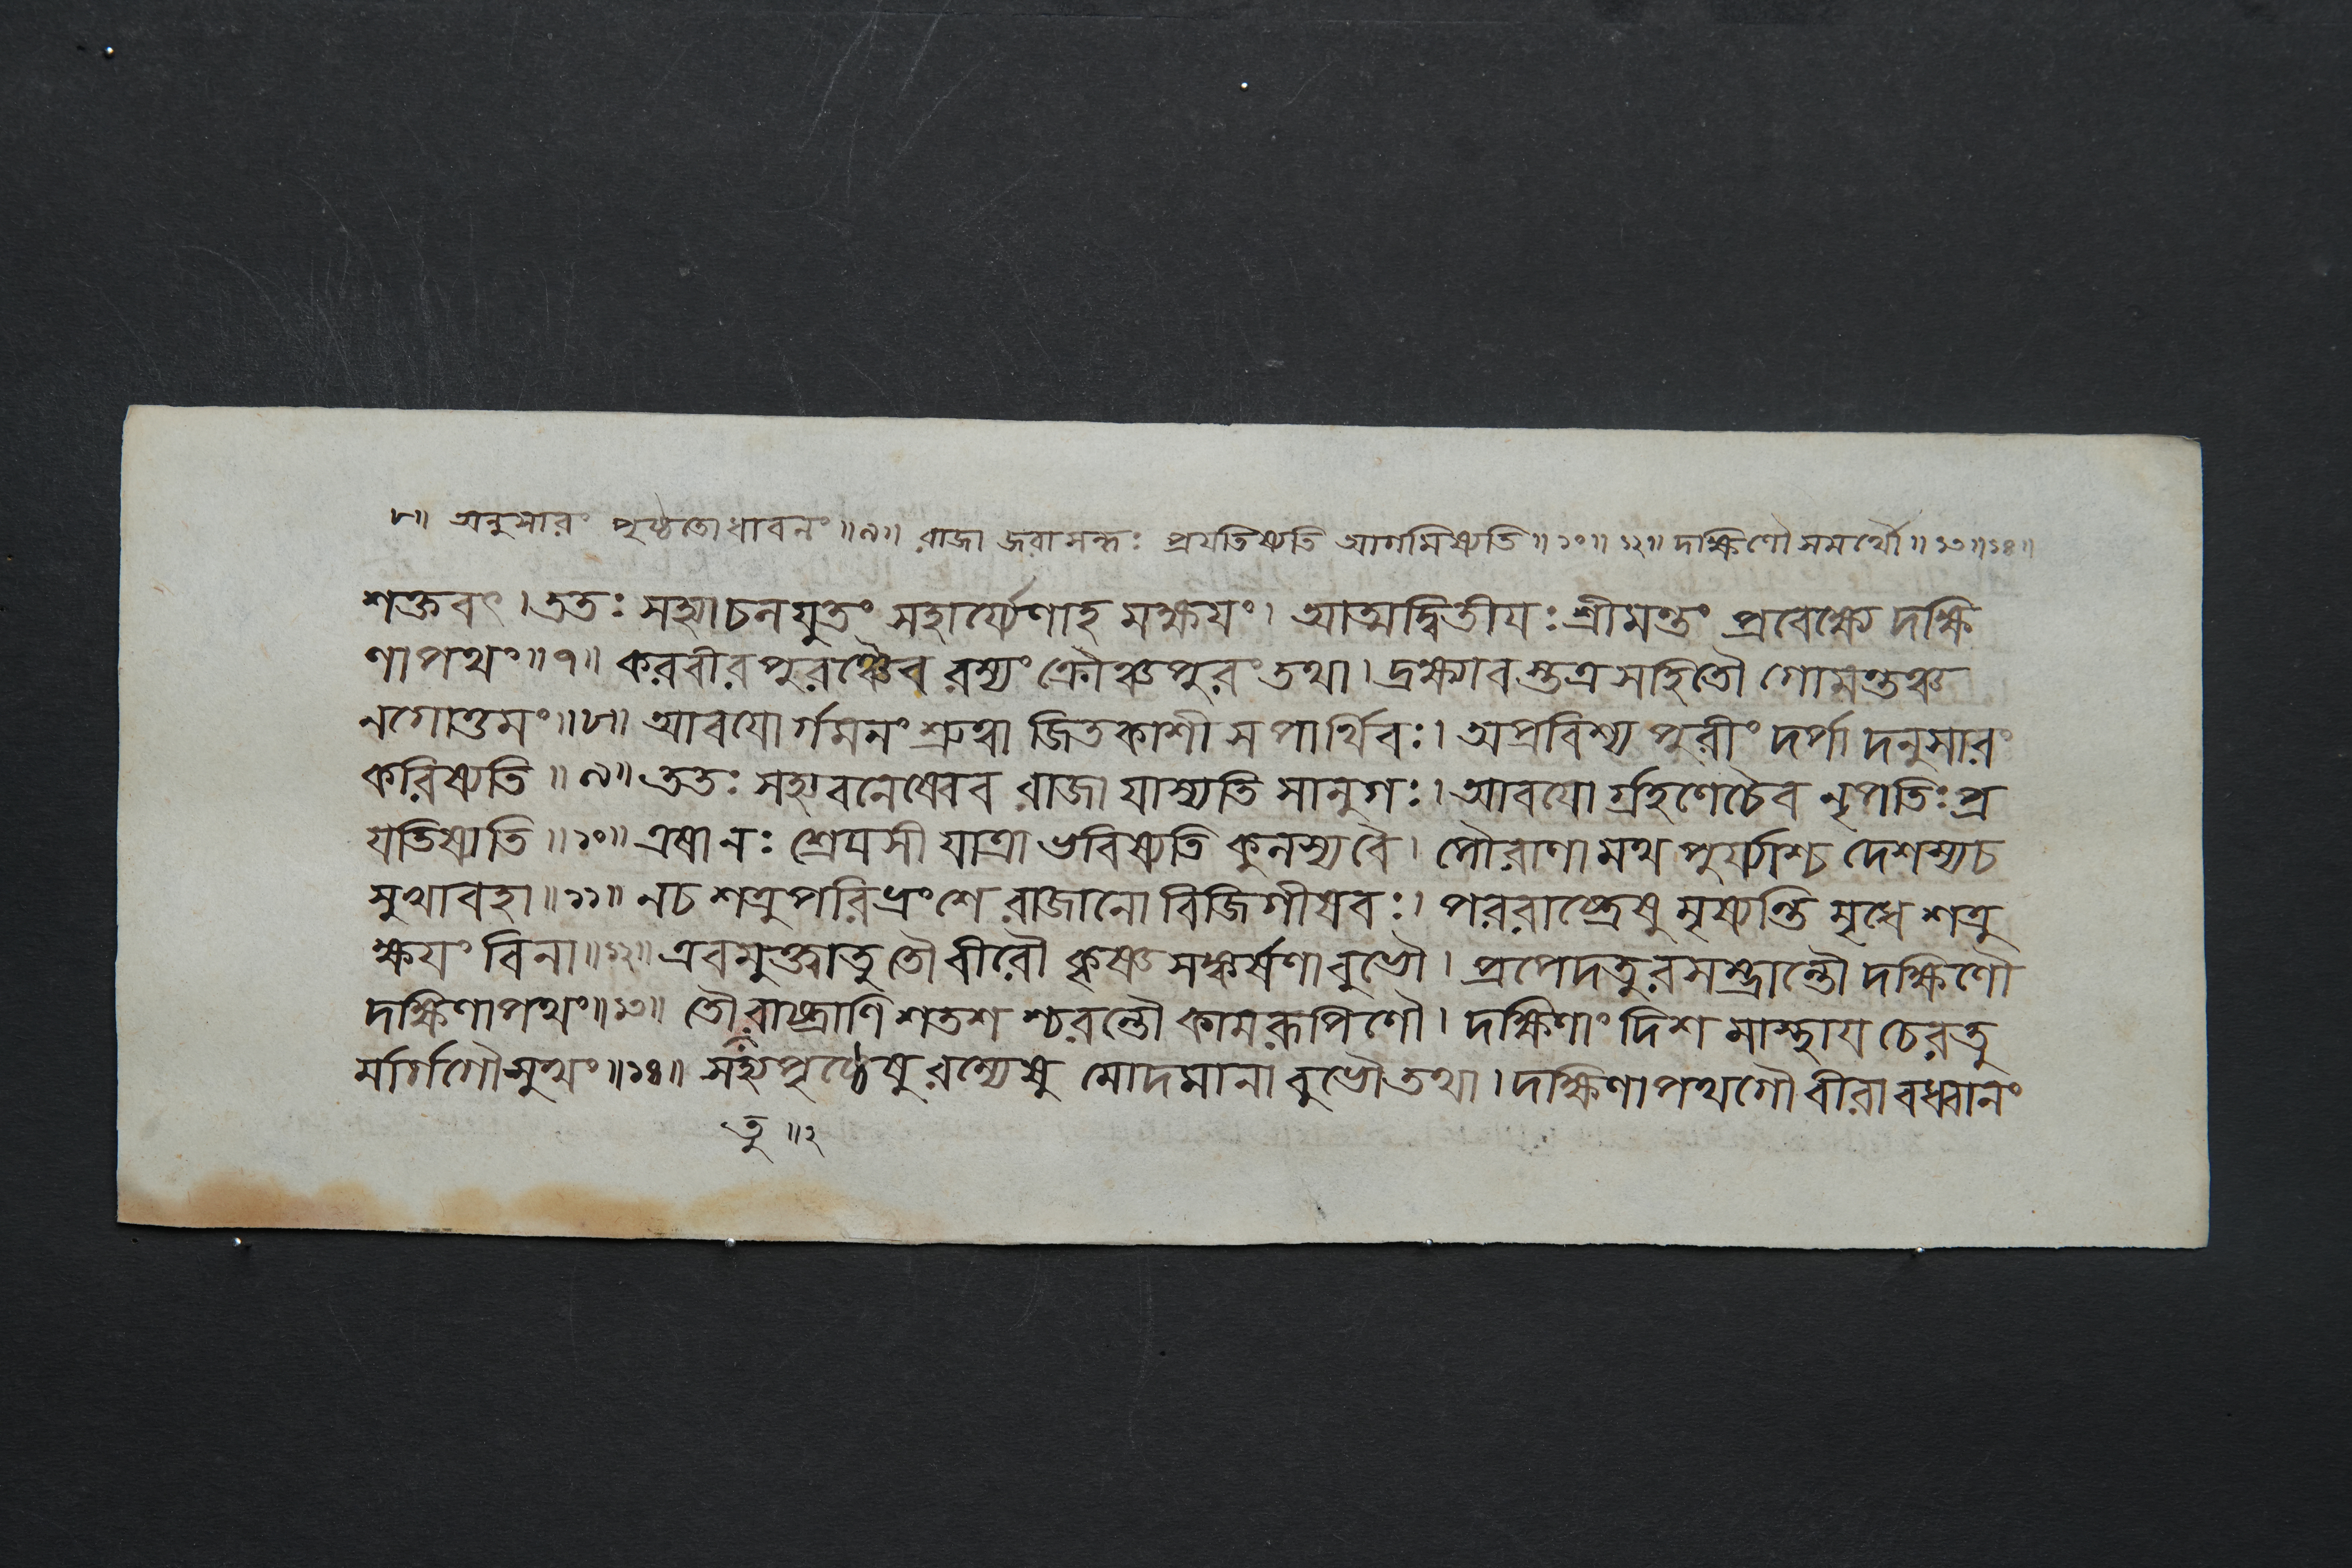 ৮॥ অনুসারং পৃষ্ঠতোধাবনং ॥৯॥ রাজা জরাসন্ধঃ প্রযতিষ্যতি আগমিষ্যতি ॥১০॥ ১২॥ দক্ষিণৌ সমর্থৌ ॥১৩॥১৪॥
শক্তবৎ।ততঃ সহ্যাচলযুতং সহার্য্যেণাহ মক্ষয়ং। আত্মদ্বিতীয়ঃ শ্রীমন্তং প্রবেক্ষ্যে দক্ষি
ণাপথং॥৭॥ করবীরপুরঞ্চৈব রম্যং ক্রৌঞ্চপুরং তথা। দ্রক্ষ্যাবস্তত্র সহিতৌ গোমন্তঞ্চ
নগোত্তমং॥৮॥ আবয়ো র্গমনং শ্রুত্বা জিতকাশী স পার্থিবঃ। অপ্রবিশ্য পুরীং দর্পা দনুসারং
করিষ্যতি ॥৯॥ ততঃ সহ্যবনেষ্বেব রাজা যাস্যতি সানুগঃ। আবয়ো র্গ্রহণেচৈব নৃপতিঃ প্র
যতিষ্যতি ॥১০॥ এষানঃ শ্রেয়সী যাত্রা ভবিষ্যতি কুলস্যবৈ। পৌরাণামথ পুর্য্যাশ্চ দেশস্যচ
সুখাবহা॥১১॥ নচ শত্রুপরিভ্রংশে রাজানো বিজিগীষবঃ। পররাষ্ট্রেষু মৃষ্যন্তি মৃধে শত্রু
ক্ষয়ং বিনা॥১২॥ এবমুক্ত্বাতু তৌ বীরৌ কৃষ্ণ সঙ্কর্ষণাবুভৌ। প্রপেদতুরসম্ভ্রান্তৌ দক্ষিণৌ
দক্ষিণাপথং॥১৩॥ তৌ রাষ্ট্রাণি শতশ শ্চরন্তৌ কামরূপিণৌ। দক্ষিণাং দিশ মাস্থায় চেরতু
র্মার্গগৌসুখং॥১৪॥ সহ্যপৃষ্ঠেষু রম্যেষু মোদমানা বুভৌতথা। দক্ষিণাপথগৌ বীরাবধ্বানং
তু ॥২